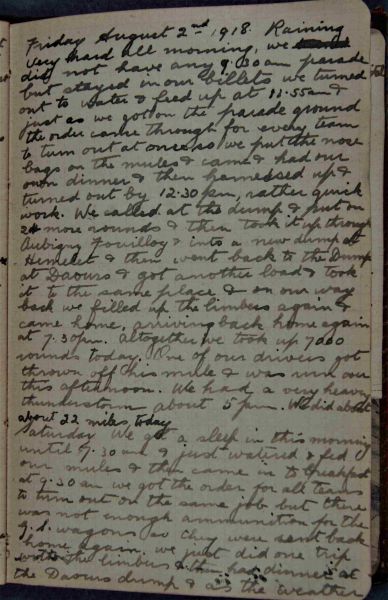 Friday August 2nd 1918. Raining
very hard all morning, we
did not have any 9.30am parade
but stayed in our billets we turned
out to water & feed up at 11.55am &
just as we got on the parade ground
the order came through for every team
to turn out at once so we put the nose
bags on the mules & came & had our
own dinner & then harnessed up &
turned out by 12.30 pm, rather quick
work. We called at the dump & put on
24 more rounds & then took it up through
Aubigny Fouilloy & into a new dump at
Hemelet & then went back to the Dump
at Daours & got another load & took
it to the same place & on our way
back we filled up the limbers again &
came home, arriving back home again
at 7.30pm. Altogether we took up 7000
rounds today. One of our drivers got
thrown off his mule & was run over
this afternoon. We had a very heavy
thunderstorm about 5pm. We did about
about 22 miles today
Saturday We got a sleep in this morning
until 7.30 am & just watered & fed
our mules & then came in to breakfast
at 9.30 am we got the order for all teams
to turn out on the same job but there
was not enough ammunition for the
g.s. wagons so they were sent back
home again. we just did one trip
with the limbers & then had dinner at
the Daours dump & as the weather